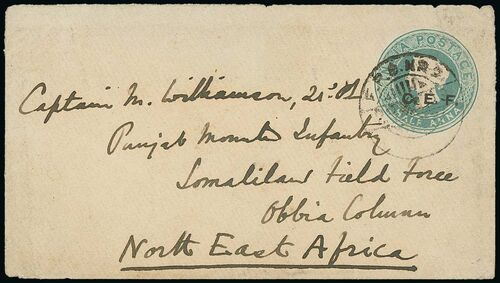 INDIA POSTAGE
C.E.F.
HALF ANNA
Captain M. Williamson, 21st
Punjab Mounted Infantry
Somaliland Field Force
Obbia Column
North East Africa